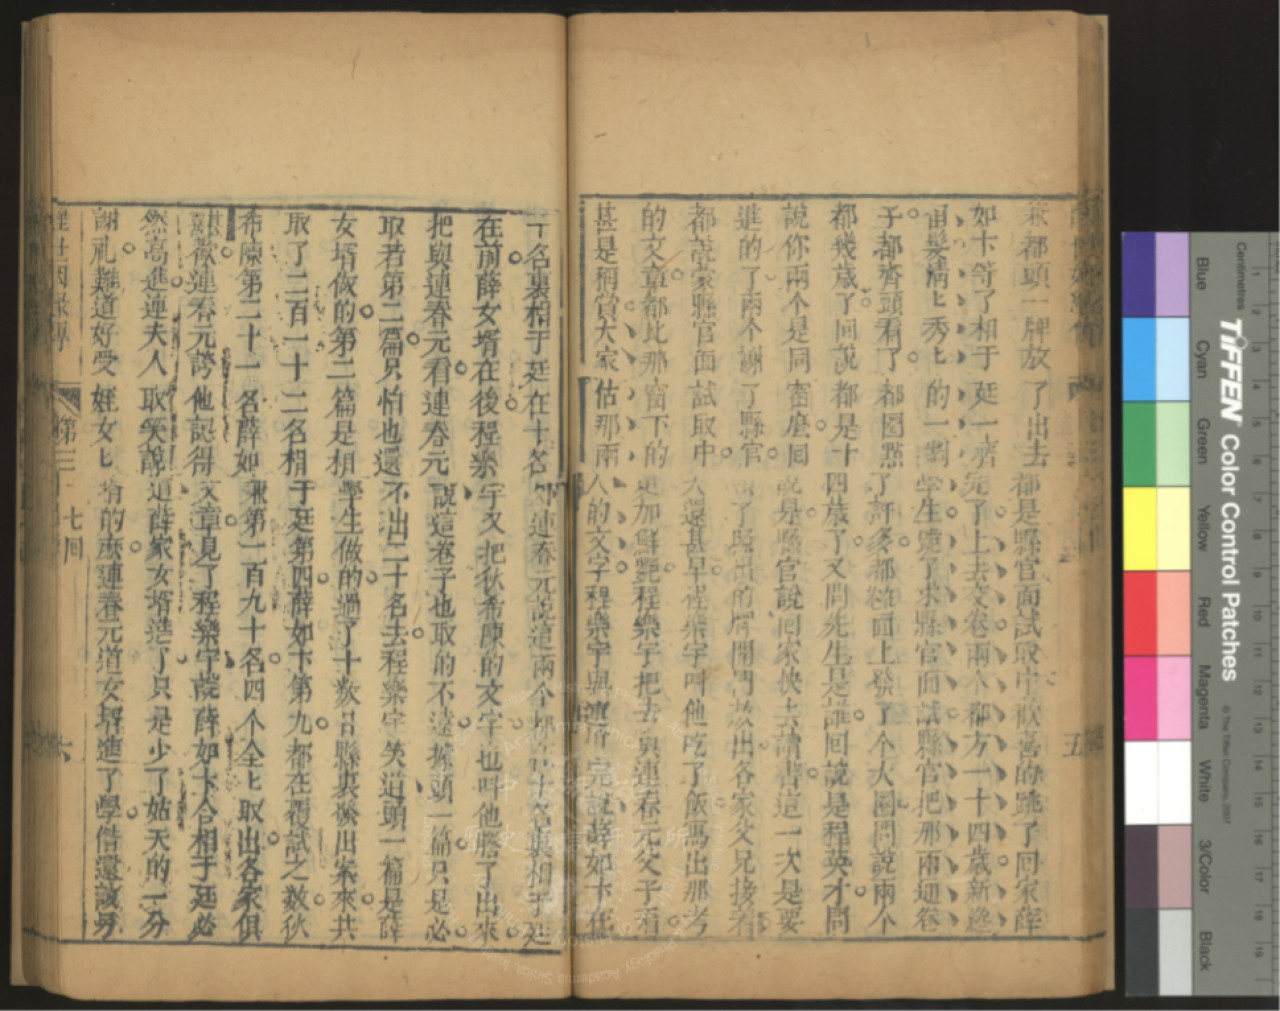 兼都頭一牌放了出去都是縣官面試取中歡喜的跳了回家薛
如卞等了相于廷一齊完了上去交卷兩个都方一十四歲新
髮清匕秀匕的一對學生跪了求縣官面試縣官把那兩卷
子都齊頭看了都圈點了許多都面上發了个大圈問說兩个
都幾歲了回說都是十四歲了又問先生是誰回說是程英才問
說你兩个是同窗麼回說是縣官說回家快去讀書這一次是要
進的了兩个謝了縣官出了照出的牌開門放出各家父兄接着
都說蒙縣官面試取中還甚早程樂宇叫他吃了飯寫出那考
的文章都比那窗下的更加鮮艷程樂宇把去與連春元父子看
甚是稱賞大家估那兩人的文字程樂宇與連完說薛如卞在
五
十名裏相于廷在十名外連春元說這兩个都在十名裏相于廷
在前薛女壻在後程樂宇又把狄希陳的文字也叫他謄了出來
把與連春元看連春元說這卷子也取的不遠據頭一篇只是必
取若第二篇只怕也還不出二十名去程樂宇笑道頭一篇是薛
女壻做的第二篇是相學生做的過了十數日縣裏發出案來共
取了二百一十二名相于廷第四薛如卞第九都在覆試之數狄
希陳第二十一名薛如兼第一百九十名四个全匕取出各家俱
甚歡連春元誇他認得文章見了程樂宇說薛如卞合相于廷必
然高進連夫人取笑說道薛家女壻進了只是少了姑夫的一分
謝礼難道好受姪女匕壻的麼連春元道女壻進了學偺還該另
醒世因緣傳 第三十七回 六
Centimetres
TIFFEN Color Control Patches
© The Tiffen Company, 2007
Blue
Cyan
Green
Yellow
Red
Magenta
White
3/Color
Black